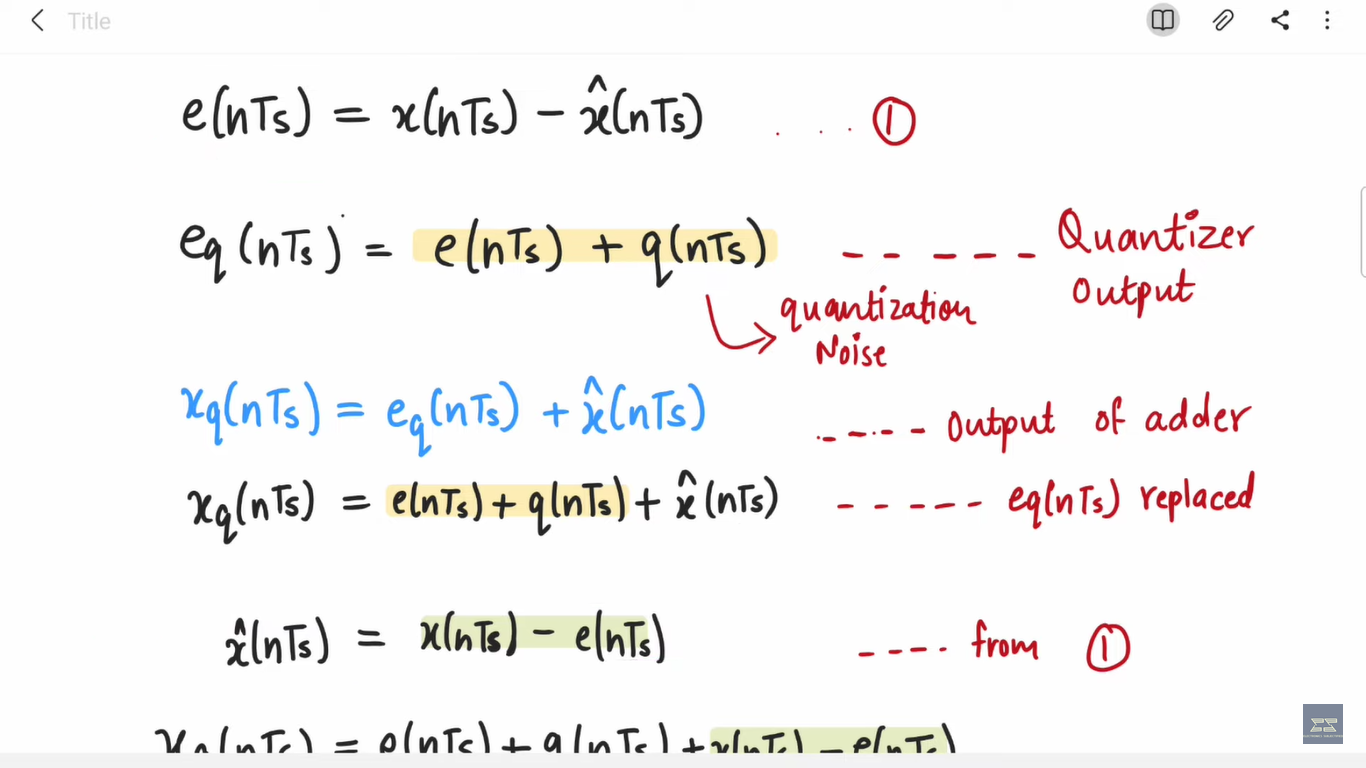 Title
e(nTs) = x(nTs) - x̂(nTs) . . . ①
eq(nTs) = e(nTs) + q(nTs) - - - - - Quantizer
Output
quantization
Noise
xq(nTs) = eq(nTs) + x̂(nTs) - - - - output of adder
xq(nTs) = e(nTs) + q(nTs) + x̂(nTs) - - - - - eq(nTs) replaced
x̂(nTs) = x(nTs) - e(nTs) - - - - from ①
xq(nTs) = e(nTs) + q(nTs) + x(nTs) - e(nTs)